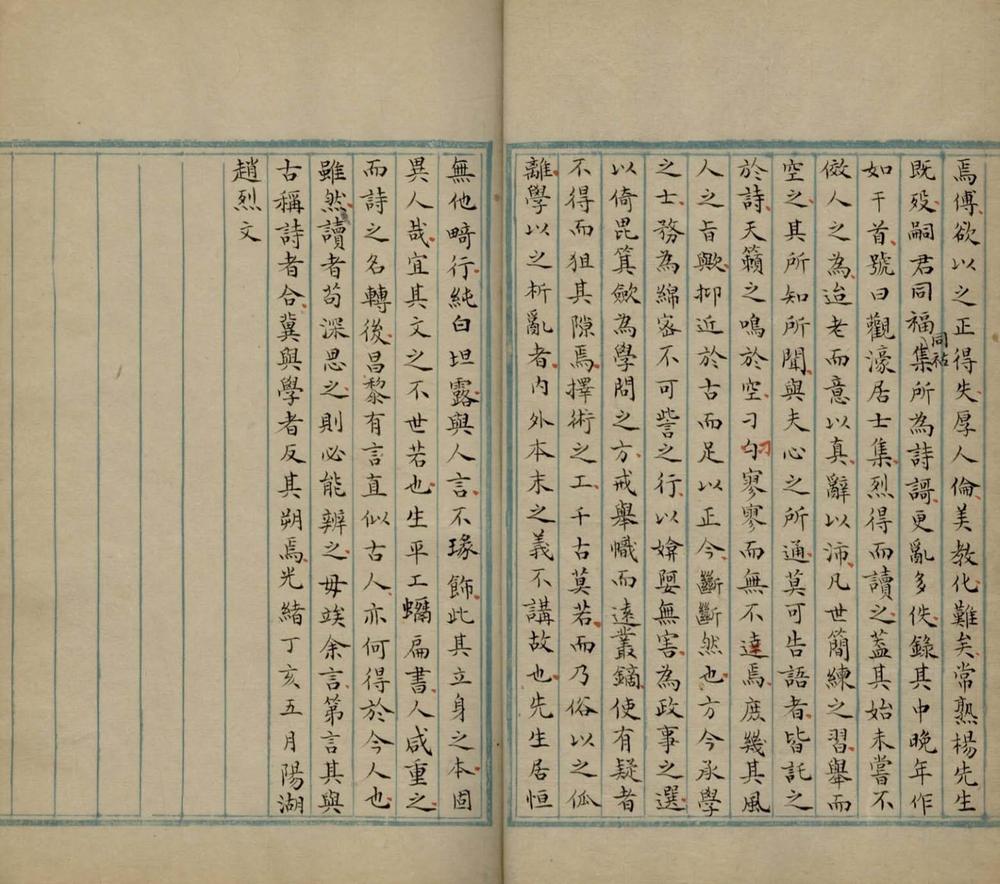 焉傅欲以之正得失厚人倫美教化難矣常熟楊先生
既歿嗣君同福同祜集所為詩謌更亂多佚錄其中晚年作
如干首號曰觀濠居士集烈得而讀之葢其始未嘗不
傚人之為迨老而意以真辭以沛凡世簡練之習舉而
空之其所知所聞與夫心之所通莫可告語者皆託之
於詩天籟之鳴於空刁匀刁寥寥而無不達焉庶幾其風
人之旨歟抑近於古而足以正今斷斷然也方今承學
之士務為綿密不可訾之行以媕娿無害為政事之選
以倚毘箕歛為學問之方戒舉幟而遠叢鏑使有疑者
不得而狙其隙焉擇術之工千古莫若而乃俗以之佩
離學以之析亂者內外本末之義不講故也先生居恒
無他畸行純白坦露與人言不瑑飾此其立身之本固
異人哉宜其文之不世若也生平工蠣扁書人咸重之
而詩之名轉後昌黎有言直似古人亦何得於今人也
雖然讀者苟深思之則必能辨之毋竢余言第言其與
古稱詩者合冀與學者反其朔焉光緒丁亥五月陽湖
趙烈文